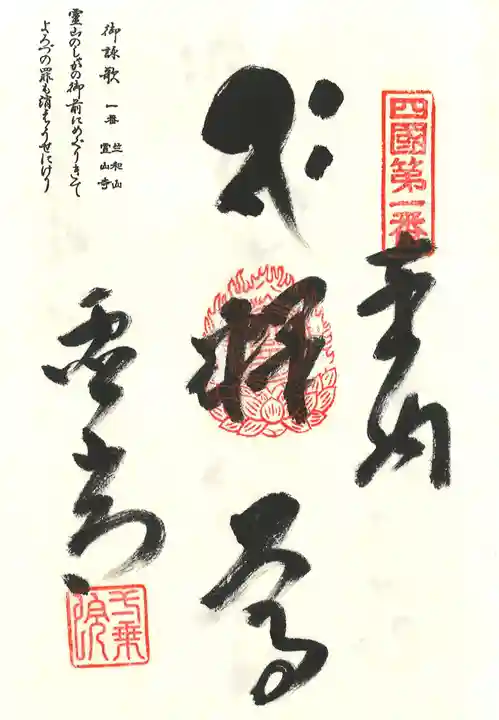 四國第一番
奉納
本尊
霊山寺
一乗院
御詠歌 一番 竺和山 霊山寺
霊山のしゃかの御前にめぐりきて
よろづの罪も消えうせにけり